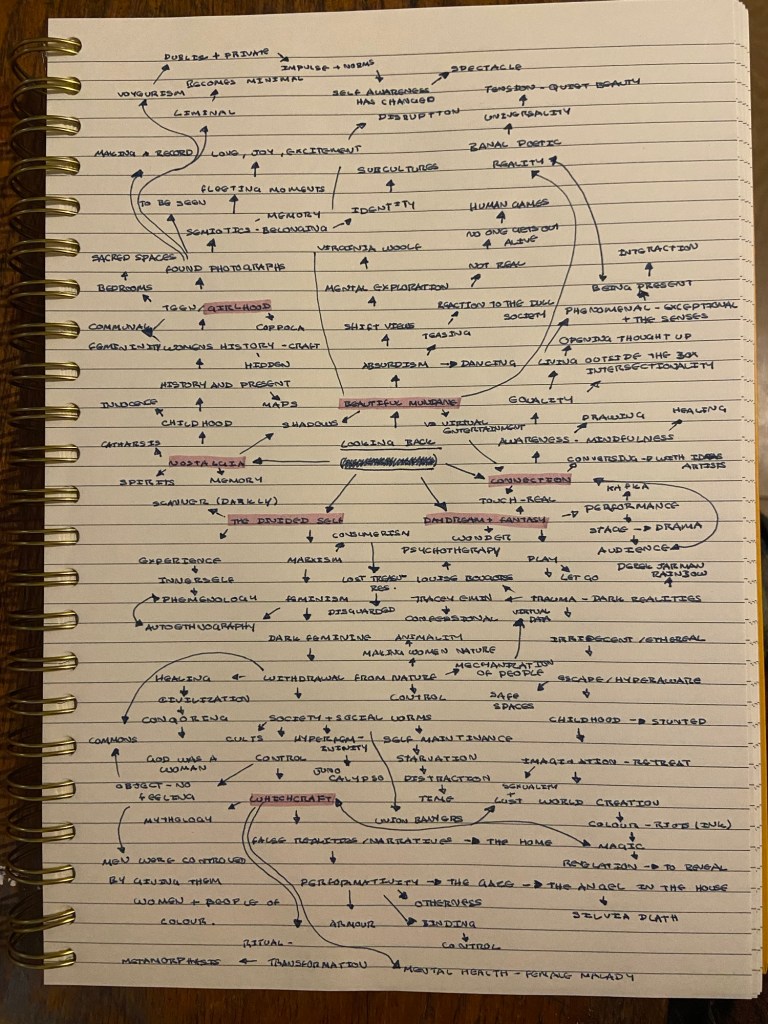 PUBLIC + PRIVATE
IMPULSE + NORMS
SPECTACLE
VOYEURISM
BECOMES MINIMAL
SELF AWARENESS
HAS CHANGED
TENSION - QUIET BEAUTY
LIMINAL
DISRUPTION
UNIVERSALITY
MAKING A RECORD
LOVE, JOY, EXCITEMENT
BANAL POETIC
REALITY
SUBCULTURES
FLEETING MOMENTS
TO BE SEEN
MEMORY
IDENTITY
HUMAN GAMES
SEMIOTICS - BELONGING
NO ONE GETS OUT
ALIVE
SACRED SPACES
FOUND PHOTOGRAPHS
VIRGINIA WOOLF
INTERACTION
NOT REAL
BEDROOMS
MENTAL EXPLORATION
BEING PRESENT
TEEN/GIRLHOOD
REACTION TO THE DULL
SOCIETY
PHENOMENAL - EXCEPTIONAL
+ THE SENSES
COMMUNAL
COPPOLA
SHIFT VIEWS
TEASING
FEMININITY
WOMENS HISTORY - CRAFT
OPENING THOUGHT UP
HIDDEN
ABSURDISM
DANCING
LIVING OUTSIDE THE BOX
INTERSECTIONALITY
HISTORY AND PRESENT
INNOCENCE
MAPS
BEAUTIFUL MUNDANE
EQUALITY
CHILDHOOD
SHADOWS
VS VIRTUAL
ENTERTAINMENT
DRAWING
HEALING
CATHARSIS
LOOKING BACK
AWARENESS - MINDFULNESS
NOSTALGIA
CONVERSING
WITH IDEAS
ARTISTS
SPIRITS
MEMORY
CONNECTION
KAFKA
SCANNER (DARKLY)
TOUCH - REAL
PERFORMANCE
THE DIVIDED SELF
DAYDREAM + FANTASY
SPACE
DRAMA
CONSUMERISM
WONDER
AUDIENCE
EXPERIENCE
MARXISM
PSYCHOTHERAPY
PLAY
DEREK JARMAN
RAINBOW
INNERSELF
LOST
RES.
LOUISE BOURGEOIS
LET GO
PHEMENOLOGY
FEMINISM
TRACEY EMIN
TRAUMA - DARK REALITIES
DISGUARDED
CONFESSIONAL
VIRTUAL
DATA
AUTOETHNOGRAPHY
DARK FEMININE
ANIMALITY
IRRIDESCENT/ETHEREAL
MAKING WOMEN NATURE
MECHANIZATION
OF PEOPLE
HEALING
WITHDRAWAL FROM NATURE
ESCAPE/HYPERAWARE
CIVILIZATION
CONTROL
SAFE
SPACES
CONQORING
SOCIETY + SOCIAL NORMS
CHILDHOOD
STUNTED
COMMONS
CULTS
HYPERFEM-
ININITY
SELF MAINTENANCE
GOD WAS A
WOMAN
CONTROL
STARVATION
IMAGINATION - RETREAT
JUNO
CALYPSO
DISTRACTION
SEXUALITY
+
OBJECT - NO
FEELING
WHICHCRAFT
TIME
LUST
WORLD CREATION
MYTHOLOGY
UNION BANGERS
COLOUR - RIOT (INK)
FALSE REALITIES/NARRATIVES
THE HOME
MAGIC
MEN WERE CONTROLED
REVELATION
TO REVEAL
BY GIVING THEM
PERFORMATIVITY
THE GAZE
THE ANGEL IN THE HOUSE
WOMEN + PEOPLE OF
OTHERNESS
COLOUR.
ARMOUR
BINDING
SILVIA PLATH
RITUAL -
CONTROL
METAMORPHESIS
TRANSFORMATION
MENTAL HEALTH - FEMALE MALADY